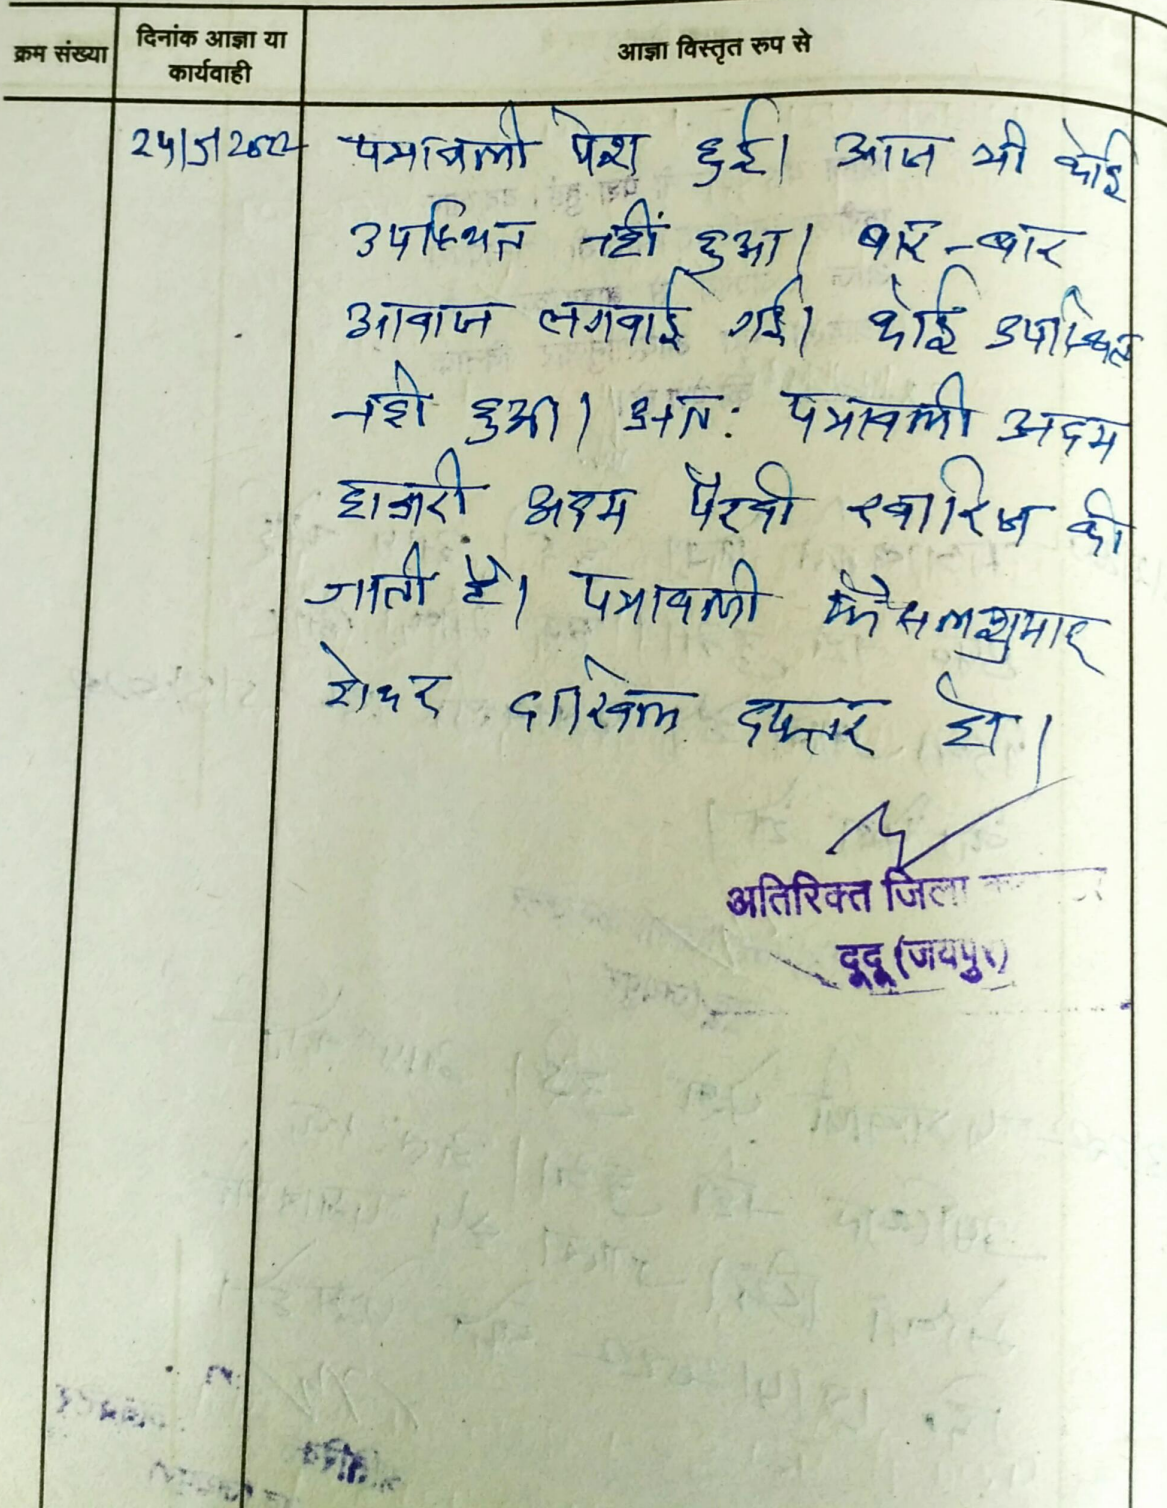 क्रम संख्या
दिनांक आज्ञा या
कार्यवाही
आज्ञा विस्तृत रुप से
पत्रावली पेश हुई। आज भी कोई
उपस्थित नहीं हुआ। बार-बार
आवाज लगवाई गई। कोई उपस्थित
नही हुआ। अत: पत्रावली अदम
हाजरी अदम पैरवी खारिज की
जाती है। पत्रावली फैसलशुमार
होकर दाखिल दफ्तर हो।
अतिरिक्त जिला
दूदू (जयपुर)